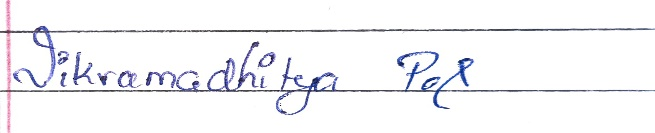 Vikramadhitya Pal